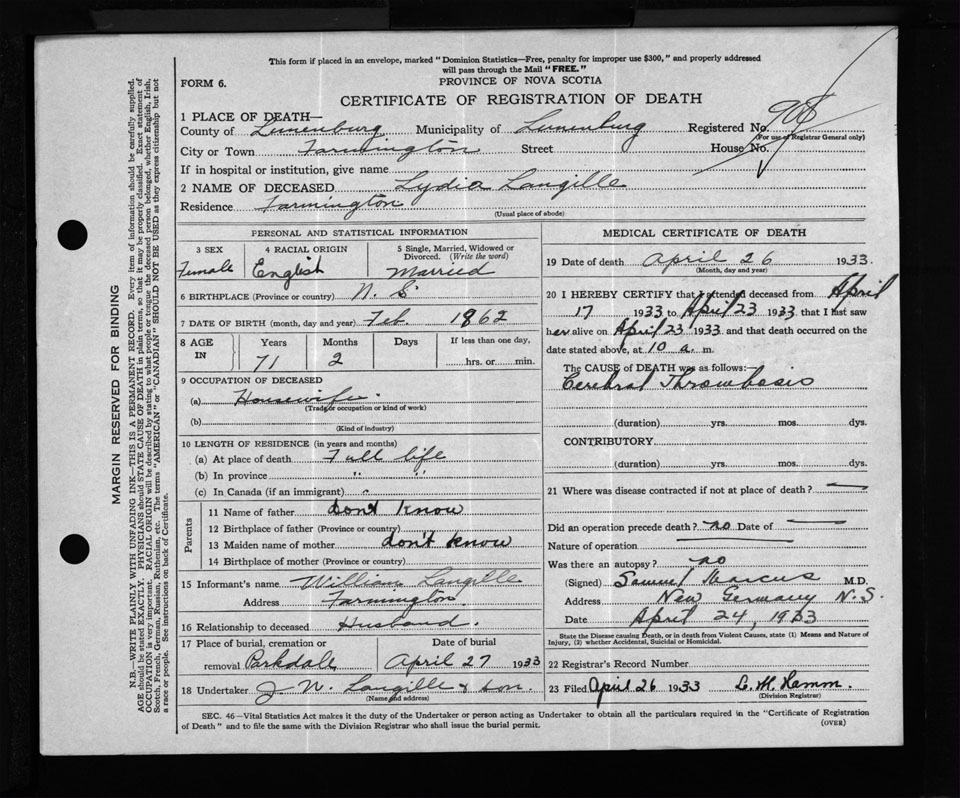 This form if placed in an envelope, marked "Dominion Statistics—Free, penalty for improper use $300," and properly addressed
will pass through the Mail "FREE."
FORM 6.
PROVINCE OF NOVA SCOTIA
CERTIFICATE OF REGISTRATION OF DEATH
1 PLACE OF DEATH—
County of Lunenburg Municipality of Lunenburg Registered No.
(For use of Registrar General only)
City or Town Farmington Street House No.
If in hospital or institution, give name
2 NAME OF DECEASED Lydia Langille
Residence Farmington
(Usual place of abode)
PERSONAL AND STATISTICAL INFORMATION
3 SEX 4 RACIAL ORIGIN 5 Single, Married, Widowed or Divorced. (Write the word)
Female English Married
6 BIRTHPLACE (Province or country) N. S.
7 DATE OF BIRTH (month, day and year) Feb 1862
8 AGE IN Years Months Days If less than one day,
71 2 hrs. or min.
9 OCCUPATION OF DECEASED
(a) Housewife.
(Trade or occupation or kind of work)
(b)
(Kind of industry)
10 LENGTH OF RESIDENCE (in years and months)
(a) At place of death Full life
(b) In province " "
(c) In Canada (if an immigrant)
Parents
11 Name of father don't know
12 Birthplace of father (Province or country)
13 Maiden name of mother don't know
14 Birthplace of mother (Province or country)
15 Informant's name William Langille
Address Farmington.
16 Relationship to deceased Husband.
17 Place of burial, cremation or Date of burial
removal Parkdale April 27 1933
18 Undertaker J W. Langille & Son.
(Name and address)
MEDICAL CERTIFICATE OF DEATH
19 Date of death April 26 1933.
(Month, day and year)
20 I HEREBY CERTIFY that I attended deceased from April
17 1933 to April 23 1933 that I last saw
her alive on April 23 1933 and that death occurred on the
date stated above, at 10 a. m.
The CAUSE of DEATH was as follows:—
Cerebral Thrombosis
(duration) yrs. mos. dys.
CONTRIBUTORY
(duration) yrs. mos. dys.
21 Where was disease contracted if not at place of death? —
Did an operation precede death? no Date of —
Nature of operation
Was there an autopsy? no
(Signed) Samuel Marcus M.D.
Address New Germany N.S.
Date April 24, 1933
State the Disease causing Death, or in death from Violent Causes, state (1) Means and Nature of
Injury, (2) whether Accidental, Suicidal or Homicidal.
22 Registrar's Record Number
23 Filed April 26 1933 L. M. Hamm.
(Division Registrar)
SEC. 46—Vital Statistics Act makes it the duty of the Undertaker or person acting as Undertaker to obtain all the particulars required in the "Certificate of Registration
of Death" and to file the same with the Division Registrar who shall issue the burial permit.
(OVER)
MARGIN RESERVED FOR BINDING
N.B.—WRITE PLAINLY WITH UNFADING INK—THIS IS A PERMANENT RECORD. Every item of information should be carefully supplied.
AGE should be stated EXACTLY. PHYSICIANS should STATE CAUSE OF DEATH in plain terms, so that it may be properly classified. Exact statement of
OCCUPATION is very important. RACIAL ORIGIN will be described by stating to what people or tongue the deceased person belonged, whether English, Irish,
Scotch, French, German, Russian, Ruthenian, etc. The terms "AMERICAN" or "CANADIAN" SHOULD NOT BE USED as they express citizenship but not
a race or people. See instructions on back of Certificate.